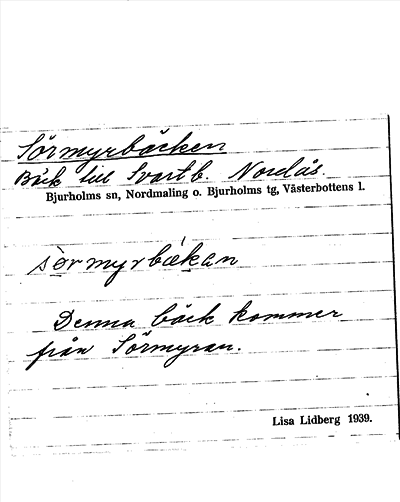 Sörmyrbäcken
Bäck till Svartb. Nordås.
Bjurholms sn, Nordmaling o. Bjurholms tg, Västerbottens l.
sörmyrbækan
Denna bäck kommer
från Sörmyran.
Lisa Lidberg 1939.